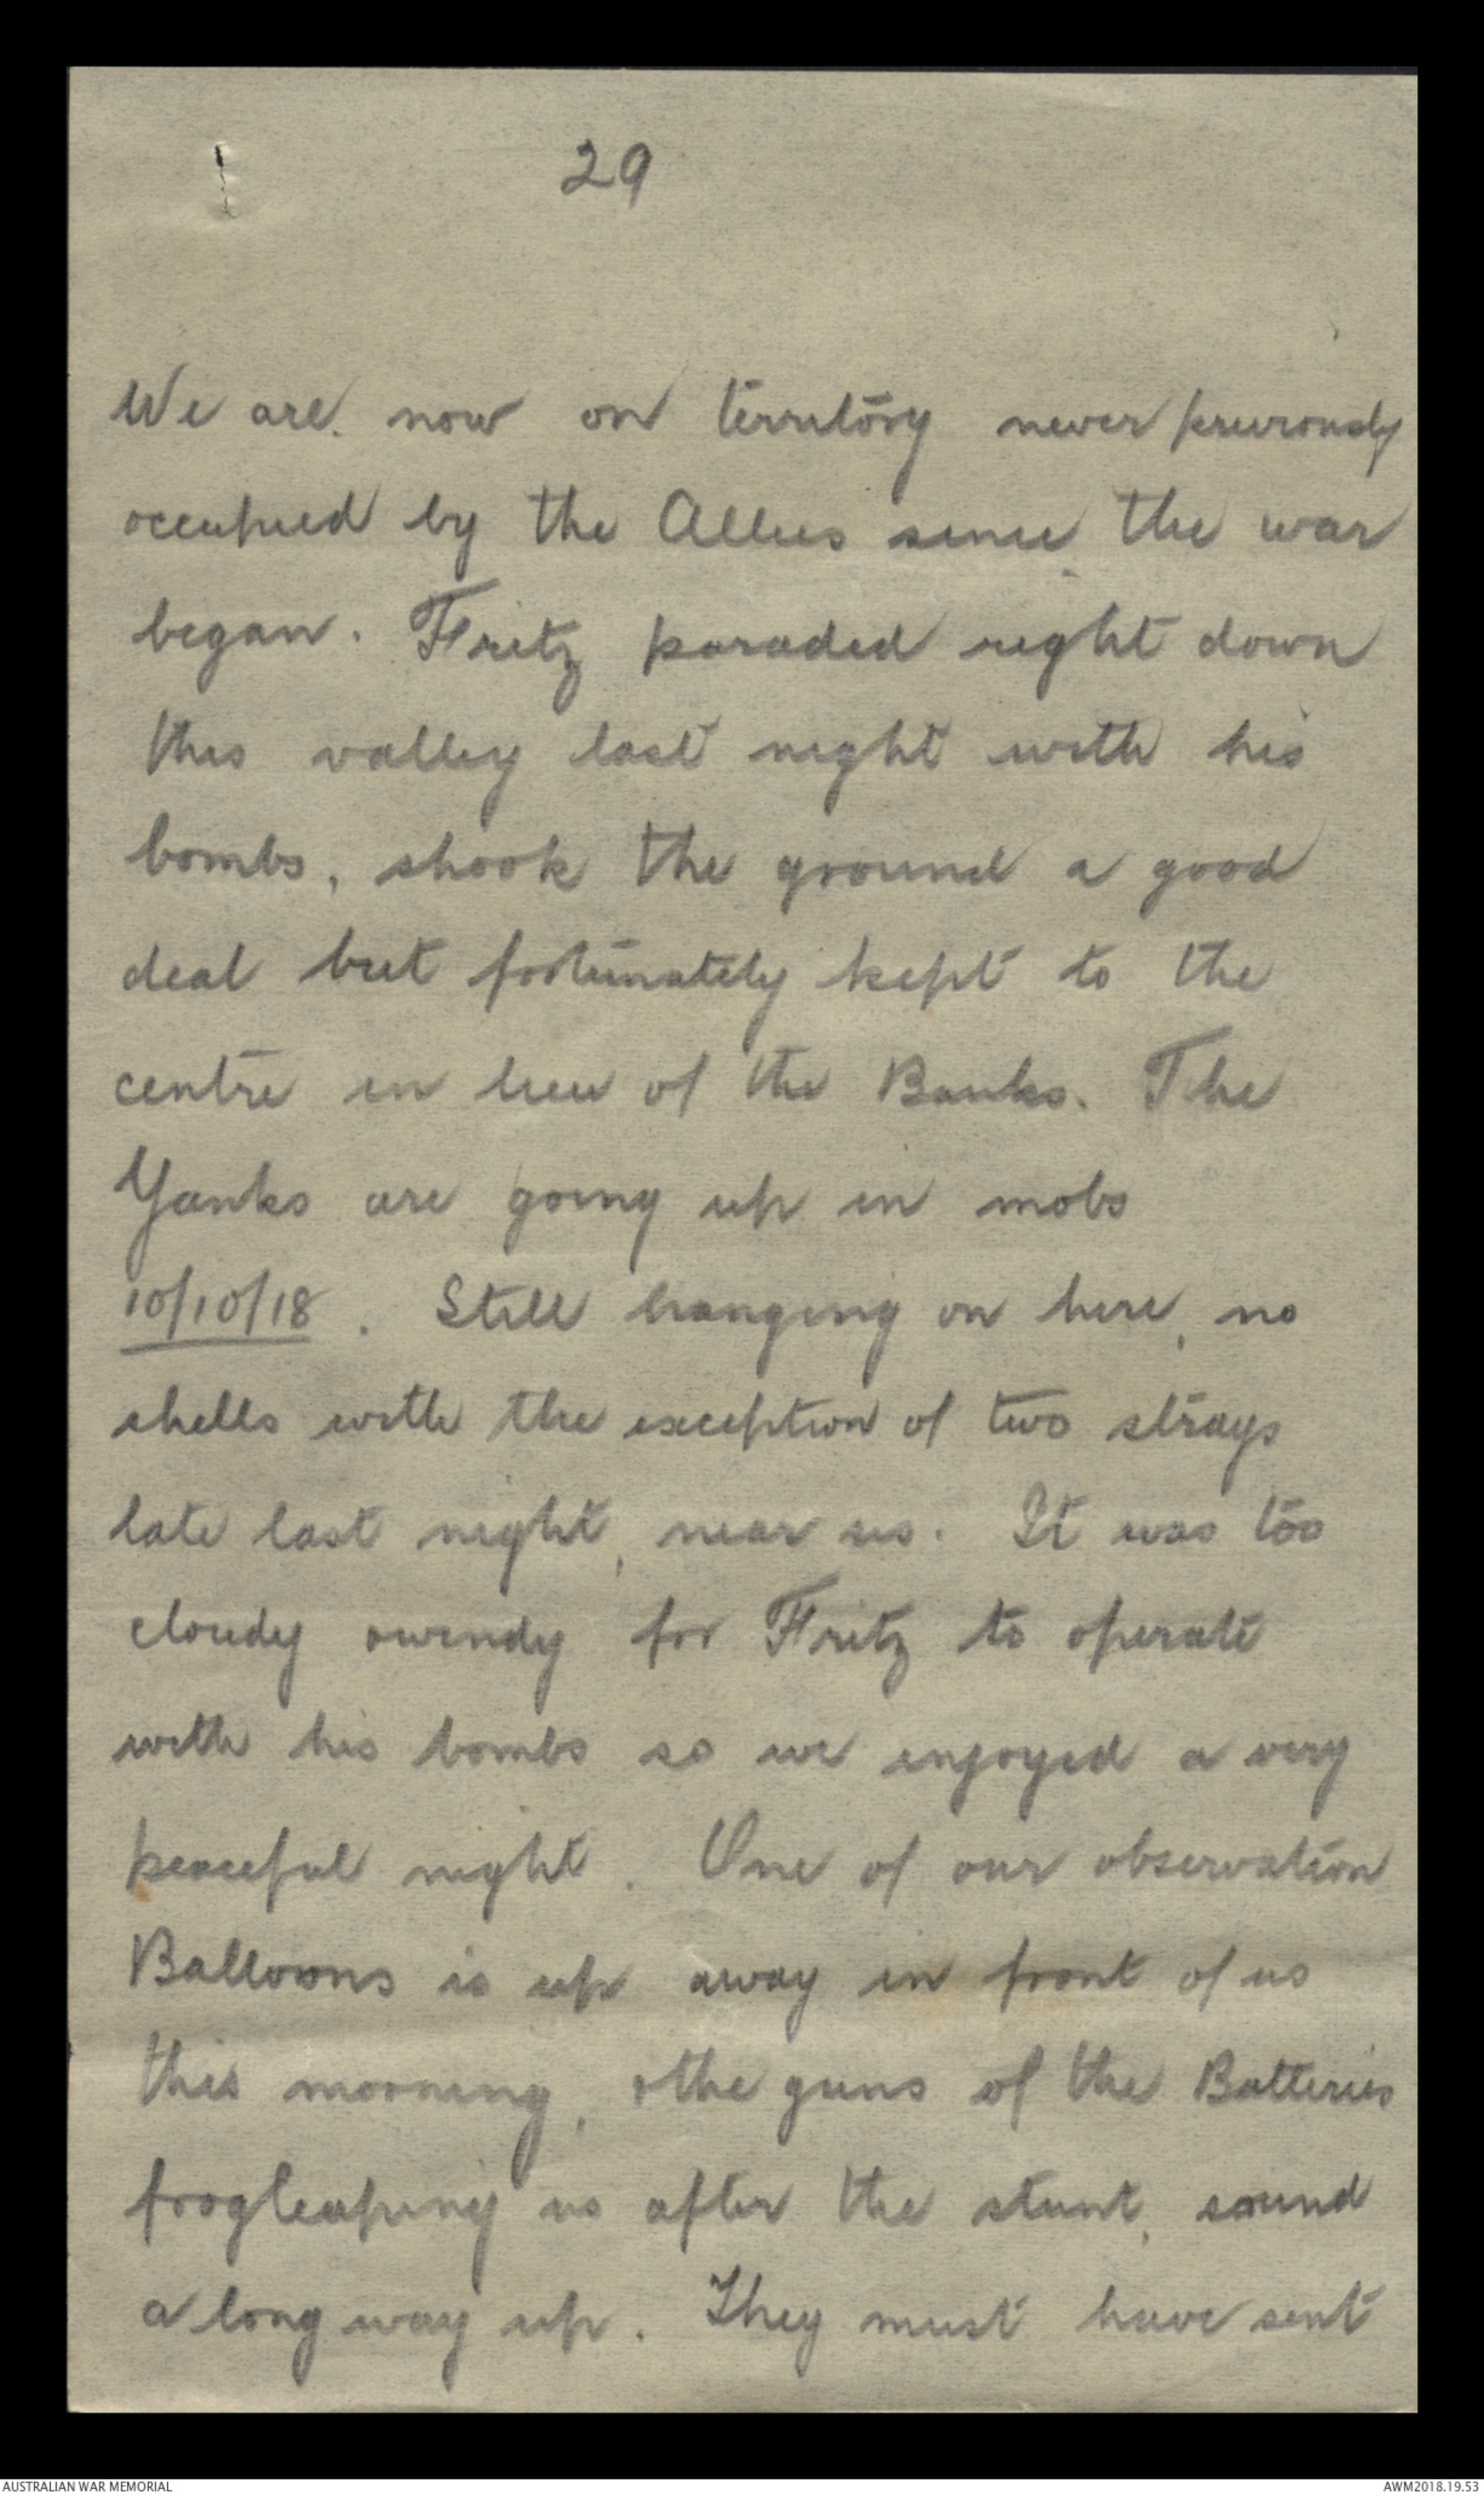 29
We are now on territory never previously
occupied by the Allies since the war
began. Fritz paraded right down
this valley last night with his
bombs, shook the ground a good
deal but fortunately kept to the
centre in lieu of the Banks. The
Yanks are going up in mobs
10/10/18. Still hanging on here, no
shells with the exception of two strays
late last night, near us. It was too
cloudy & windy for Fritz to operate
with his bombs so we enjoyed a very
peaceful night. One of our observation
Balloons is up away in front of us
this morning, & the guns of the Batteries
frogleaping us after the stunt, sound
a long way up. They must have sent
AUSTRALIAN WAR MEMORIAL
AWM2018.19.53